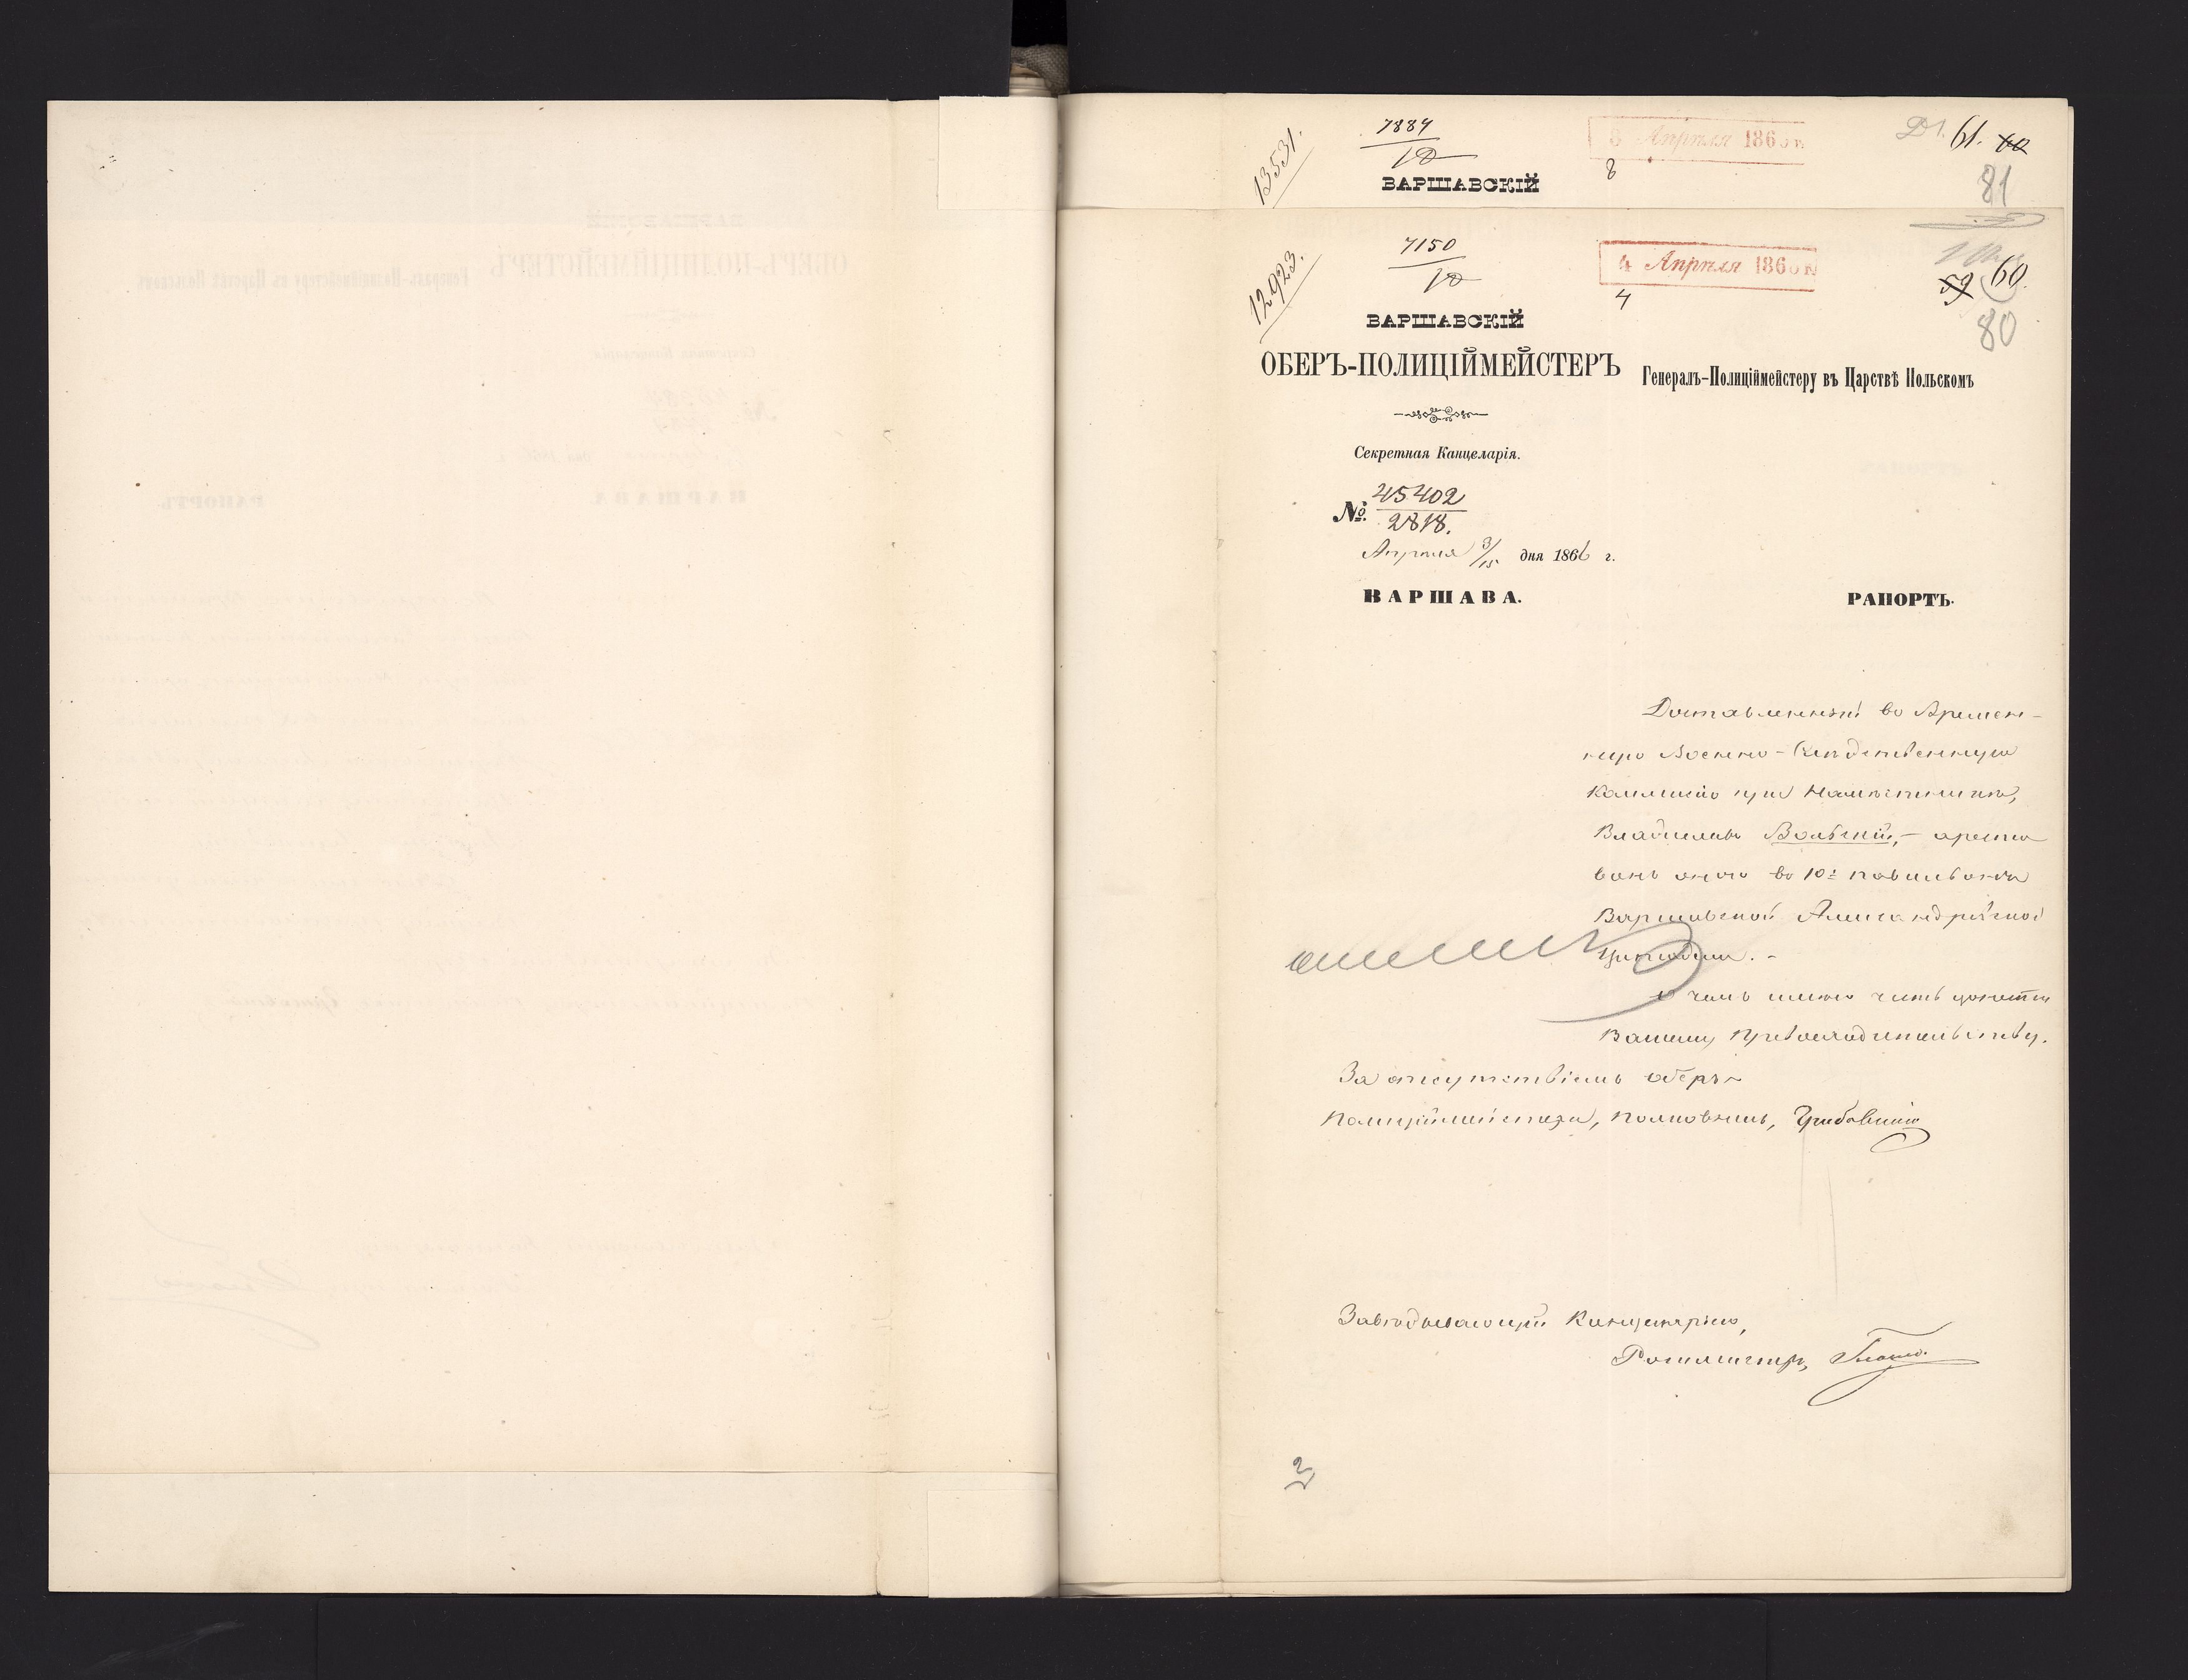 13531.
7884
10
8 Апрѣля 186
8
Д. 61. 60
81
ВАРШАВСКІЙ
12923.
7150
10
4 Апрѣля 186
4
59 60.
80
ВАРШАВСКІЙ
ОБЕРЪ-ПОЛИЦІЙМЕЙСТЕРЪ
Генералъ-Полиціймейстеру въ Царствѣ Польскомъ
Секретная Канцелярія.
№ 45402
2818.
Апрѣля 3/15 дня 1866 г.
ВАРШАВА.
РАПОРТЪ.
Доставленный во Времен-
ную Военно-Слѣдственную
Коммисію при Намѣстникѣ,
Владиславъ Вольскій, - аресто
ванъ оною въ 10й павильонъ
Варшавской Александрійской
Цитадели. -
О чемъ имѣю честь донести
Вашему Превосходительству.
За отсутствіемъ оберъ-
полиціймейстера, полковникъ, Грибовскій
Завѣдывающій Канцеляріею,
Ротмистръ,
2